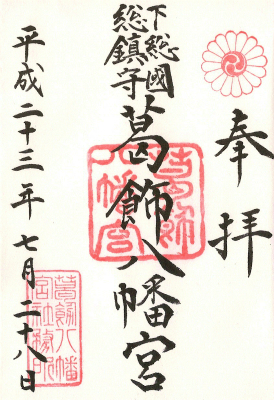 奉拝
下総國
総鎮守
葛飾八幡宮
平成二十三年七月二十八日
葛飾
八幡宮
葛飾八幡
宮社務所印